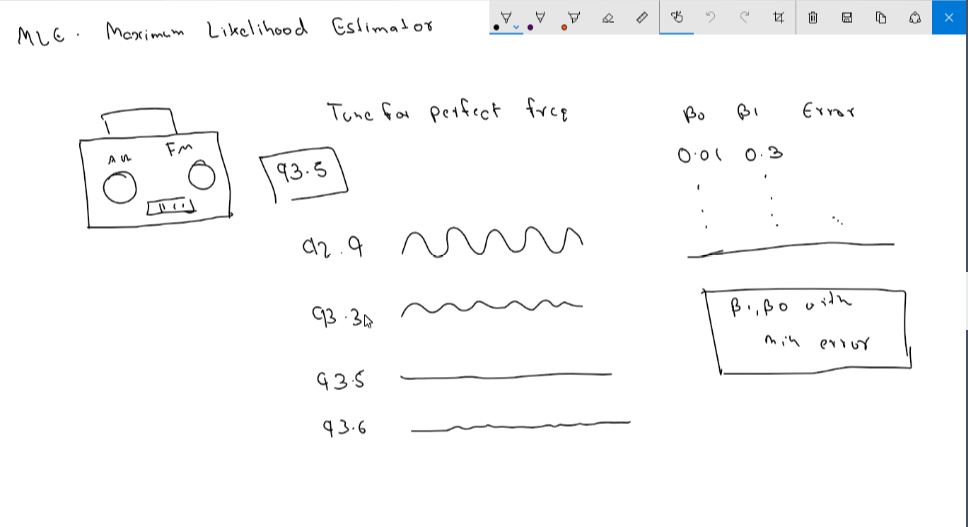 MLE. Maximum Likelihood Estimator
Tune for perfect freq
AM FM
93.5
92.9
93.3
93.5
93.6
β0 β1 Error
0.01 0.3
β1, β0 with
min error